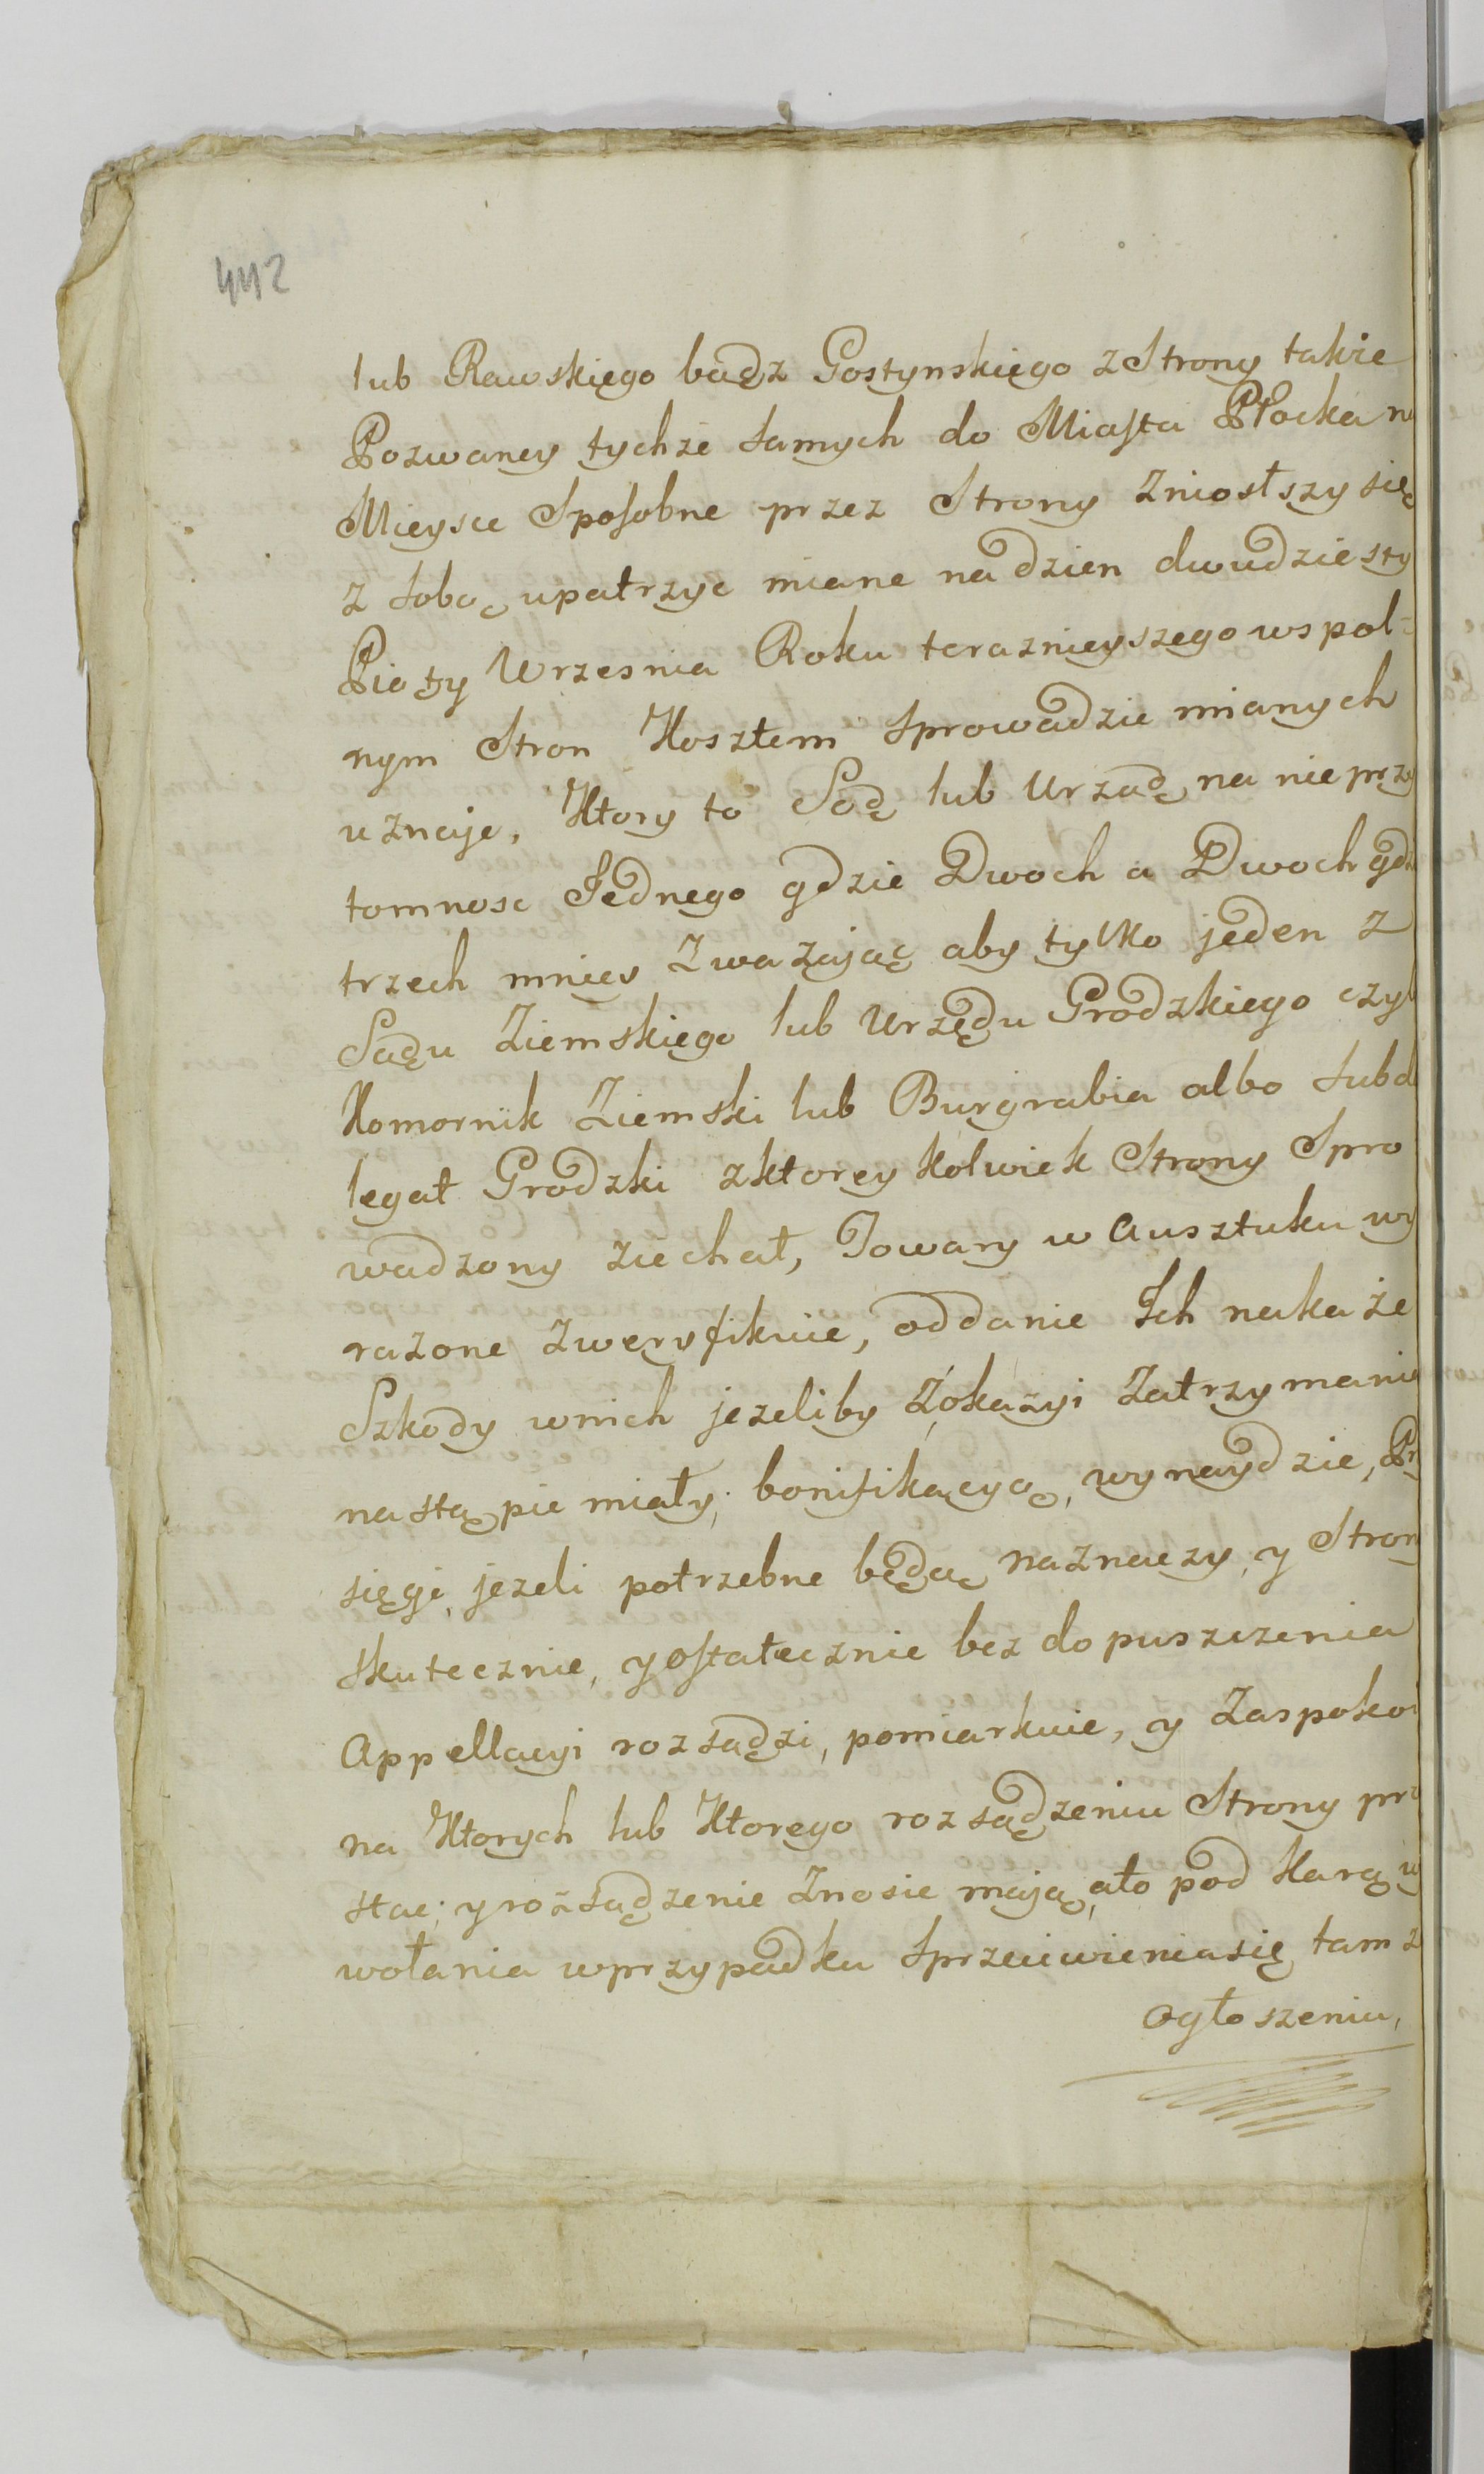 442
lub Rawskiego bądz Gostynskiego z Strony takze
Pozwaney tychze samych do Miasta Płocka n
Mieysce Sposobne przez Strony Zniosłszy się
z sobą upatrzyc miane na dzien dwudziesty
Piąty Wrzesnia Roku terazniejszego wspol=
nym Stron Kosztem Sprowadzic mianych
uznaje, Ktory to Sąd lub Urząd na nieprzy
tomnosc Jednego gdzie Dwoch a Dwoch gdz
trzech mniey Zwazając aby tylko jeden z
Sądu Ziemskiego lub Urzędu Grodzkiego czyl
Komornik Ziemski lub Burgrabia albo Subd
legat Grodzki z ktorey kolwiek Strony Spro
wadzony ziechał, Towary w Ausztuku wy
razone zweryfikuie, oddanie Ich nakaze
Szkody w nich jezeliby z okazyi Zatrzymania
nastąpic miały, bonifikacyą, wynaydzie, Pr
sięge, jezeli potrzebne będą naznaczy, y Stron
skutecznie, y ostatecznie bez dopuszczenia
Appellacyi rozsądzi, pomiarkuie, y Zaspokoi
na Ktorych lub Ktorego rozsądzeniu Strony prz
stac; y rozsądzenie Znosic mają, a to pod Karą w
wołania w przypadku Sprzeciwienia się tam z
ogłoszeniu,